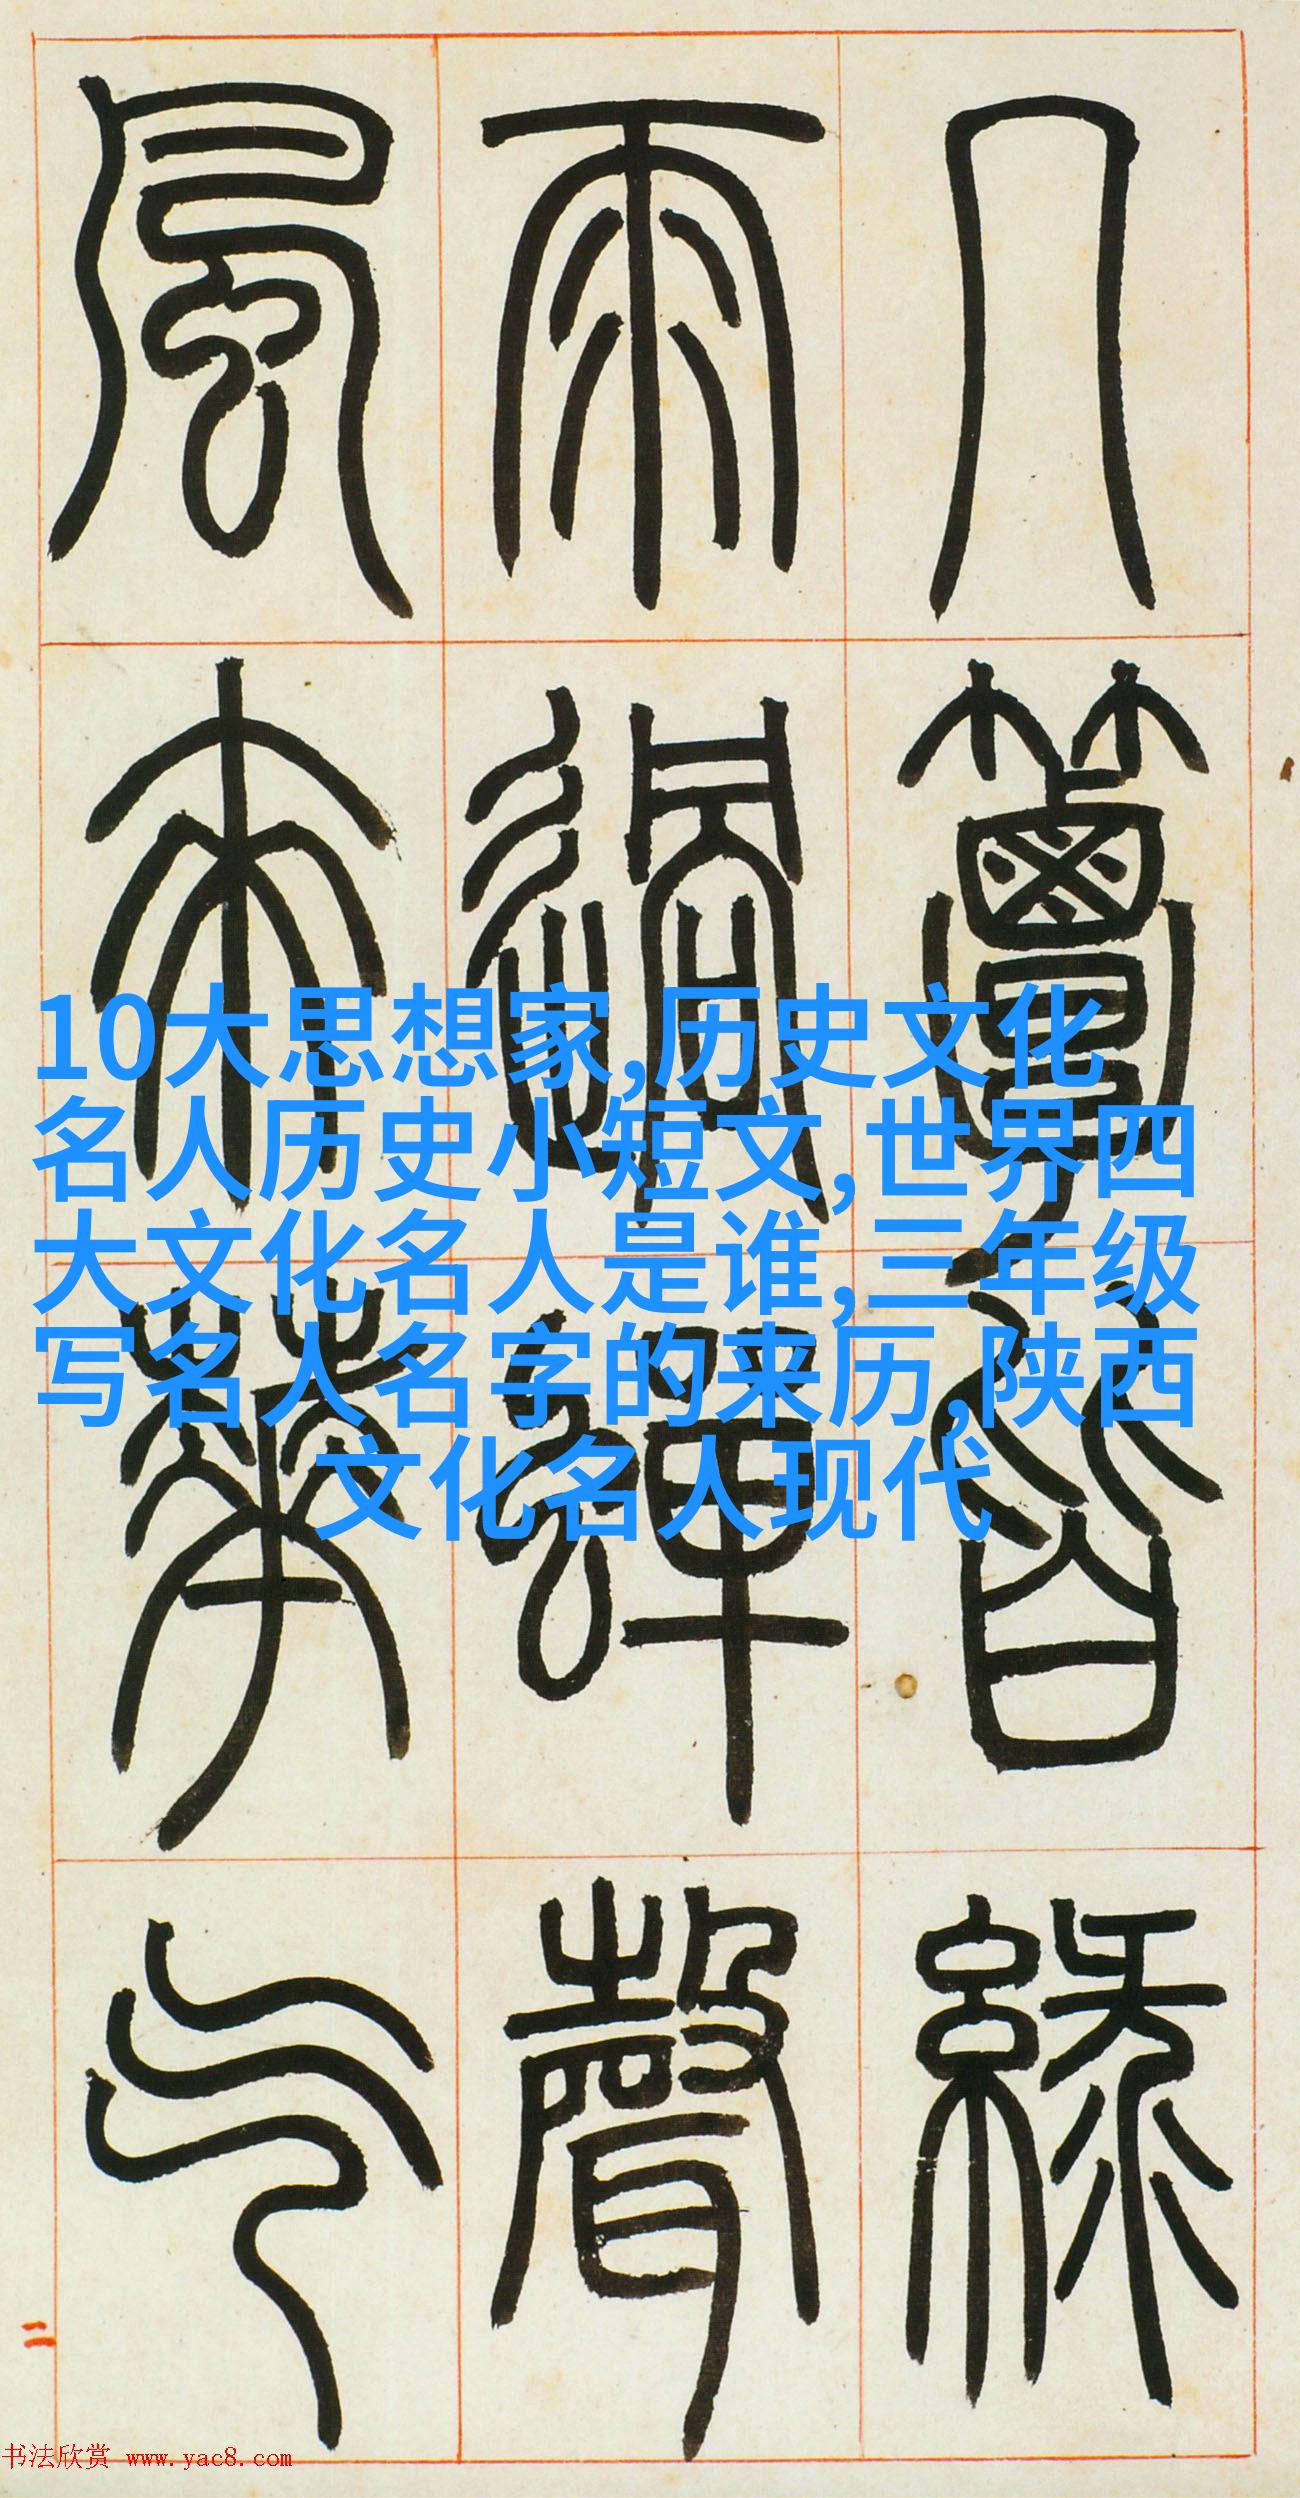 几簟皆綠
雨過蟬聲
風來華气
10大思想家,历史文化
名人历史小短文,世界四
大文化名人是谁,三年级
写名人名字的来历,陕西
文化名人现代
二
书法欣赏 www.yac8.com